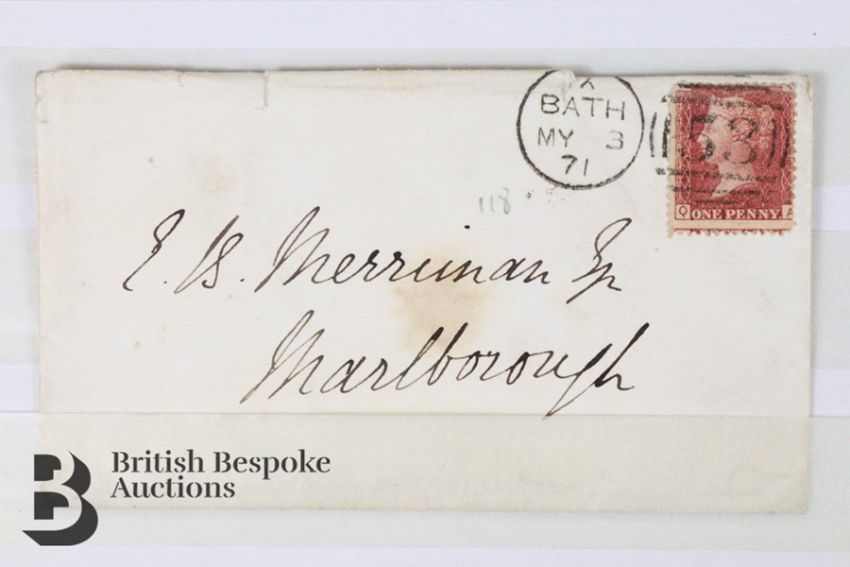 X
BATH
MY 3
71
53
Q ONE PENNY A
118
E. B. Merriman Esq
Marlborough
British Bespoke
Auctions
B